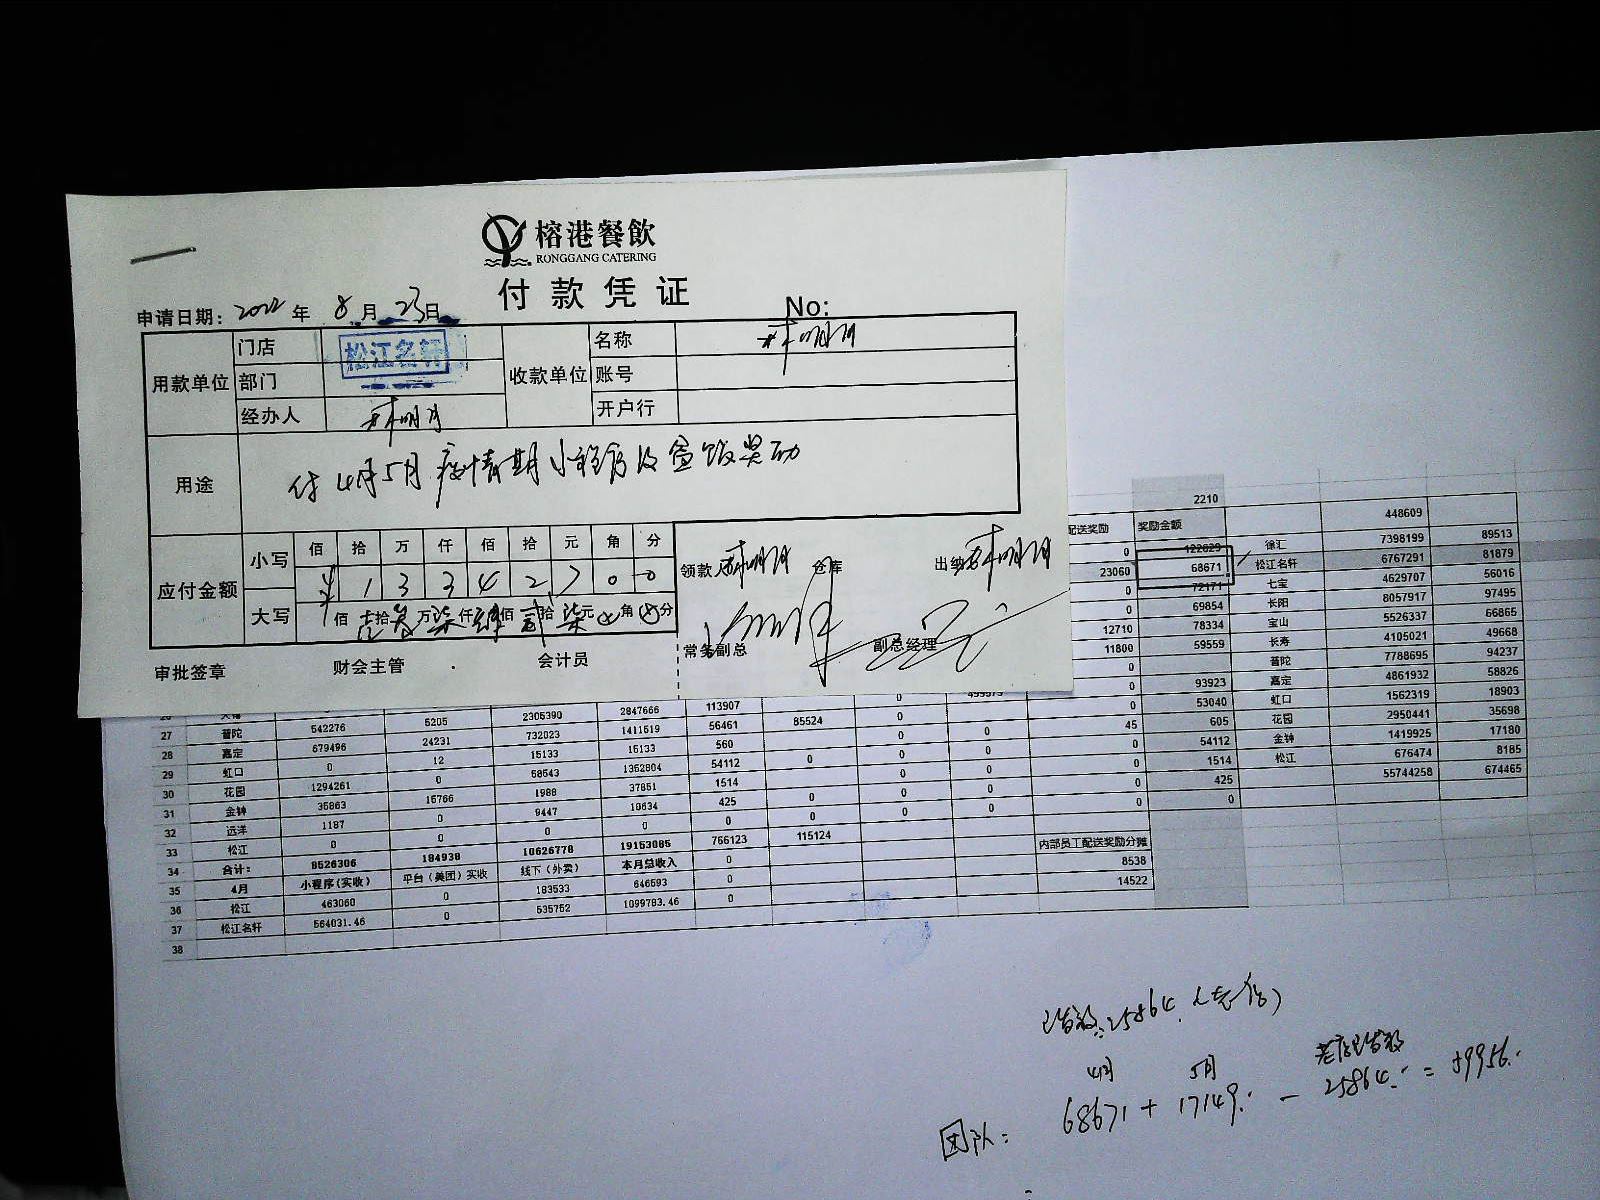 榕港餐飲
RONGGANG CATERING
付款凭证
申请日期: 2022 年 8 月 23 日 No:
用款单位 门店 松江名轩 收款单位 名称
部门 账号
经办人 开户行
用途 付4月5月疫情期小程序及盒饭奖励
应付金额 小写 佰 拾 万 仟 佰 拾 元 角 分
¥ 1 3 3 4 2 7 0 0
大写 佰 拾 万 仟 佰 拾 元 角 分
领款 仓库 出纳
常务副总 副总经理
审批签章 财会主管 会计员
2210
配送奖励 奖励金额 448609
0 122629 徐汇 7398199 89513
23060 68671 松江名轩 6767291 81879
0 72171 七宝 4629707 56016
0 69854 长阳 8057917 97495
12710 78334 宝山 5526337 66865
11800 59559 长寿 4105021 49668
0 普陀 7788695 94237
0 93923 嘉定 4861932 58826
0 53040 虹口 1562319 18903
45 605 花园 2950441 35698
0 54112 金钟 1419925 17180
0 1514 松江 676474 8185
0 425 55744258 674465
0 0
27 普陀 542276 5205 2305390 2847666 113907 0 499573
28 嘉定 679496 24231 732023 1411519 56461 85524 0
29 虹口 0 12 15133 15133 560 0 0
30 花园 1294261 0 58543 1352804 54112 0 0 0
31 金钟 35863 15766 1988 37851 1514 0 0
32 远洋 1187 0 9447 10634 425 0 0 0
33 松江 0 0 0 0 0 0 0 0
34 合计: 8526306 184938 10626778 19153085 766123 115124
35 4月 小程序(实收) 平台(美团)实收 线下(外卖) 本月总收入 0
36 松江 463060 0 183533 646593 0
37 松江名轩 564031.46 0 535752 1099783.46 0
38
内部员工配送奖励分摊
8538
14522
已借款: 25864
4月 5月 老店已借款
团队: 68671 + 17149. - 25864. = 59956.